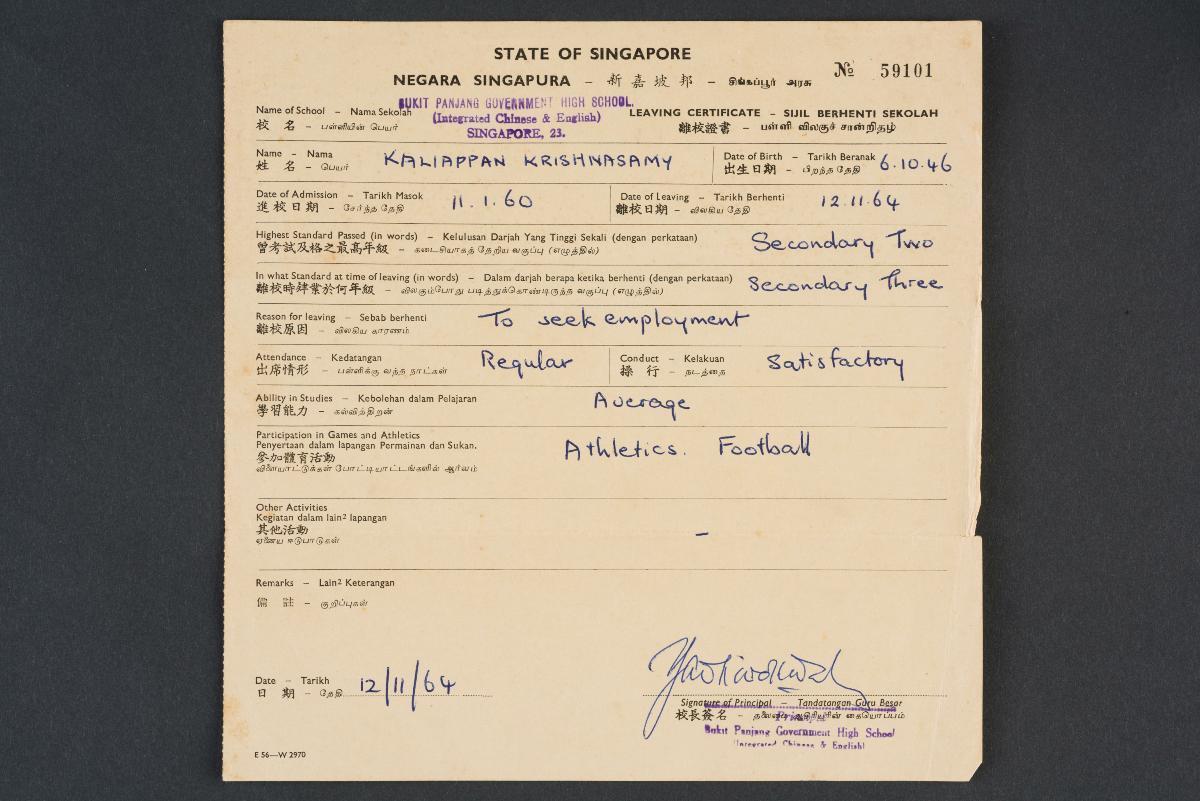 STATE OF SINGAPORE
NEGARA SINGAPURA – 新嘉坡邦 – சிங்கப்பூர் அரசு
№ 59101
Name of School – Nama Sekolah
校名 – பள்ளியின் பெயர்
BUKIT PANJANG GOVERNMENT HIGH SCHOOL.
(Integrated Chinese & English)
SINGAPORE, 23.
LEAVING CERTIFICATE – SIJIL BERHENTI SEKOLAH
離校證書 – பள்ளி விலகுச் சான்றிதழ்
Name – Nama
姓名 – பெயர்
KALIAPPAN KRISHNASAMY
Date of Birth – Tarikh Beranak
出生日期 – பிறந்த தேதி
6.10.46
Date of Admission – Tarikh Masok
進校日期 – சேர்ந்த தேதி
11.1.60
Date of Leaving – Tarikh Berhenti
離校日期 – விலகிய தேதி
12.11.64
Highest Standard Passed (in words) – Kelulusan Darjah Yang Tinggi Sekali (dengan perkataan)
曾考試及格之最高年級 – கடைசியாகத் தேறிய வகுப்பு (எழுத்தில்)
Secondary Two
In what Standard at time of leaving (in words) – Dalam darjah berapa ketika berhenti (dengan perkataan)
離校時肄業於何年級 – விலகும்போது படித்துக்கொண்டிருந்த வகுப்பு (எழுத்தில்)
Secondary Three
Reason for leaving – Sebab berhenti
離校原因 – விலகிய காரணம்
To seek employment
Attendance – Kedatangan
出席情形 – பள்ளிக்கு வந்த நாட்கள்
Regular
Conduct – Kelakuan
操行 – நடத்தை
Satisfactory
Ability in Studies – Kebolehan dalam Pelajaran
學習能力 – கல்வித்திறன்
Average
Participation in Games and Athletics
Penyertaan dalam lapangan Permainan dan Sukan.
參加體育活動
விளையாட்டுக்கள் போட்டியாட்டங்களில் ஆர்வம்
Athletics. Football
Other Activities
Kegiatan dalam lain2 lapangan
其他活動
ஏனைய ஈடுபாடுகள்
–
Remarks – Lain2 Keterangan
備註 – குறிப்புகள்
Date – Tarikh
日期 – தேதி
12/11/64
Signature of Principal – Tandatangan Guru Besar
校長簽名 – தலைமை ஆசிரியரின் கையொப்பம்
Principal
Bukit Panjang Government High School
(Integrated Chinese & English)
E 56—W 2970